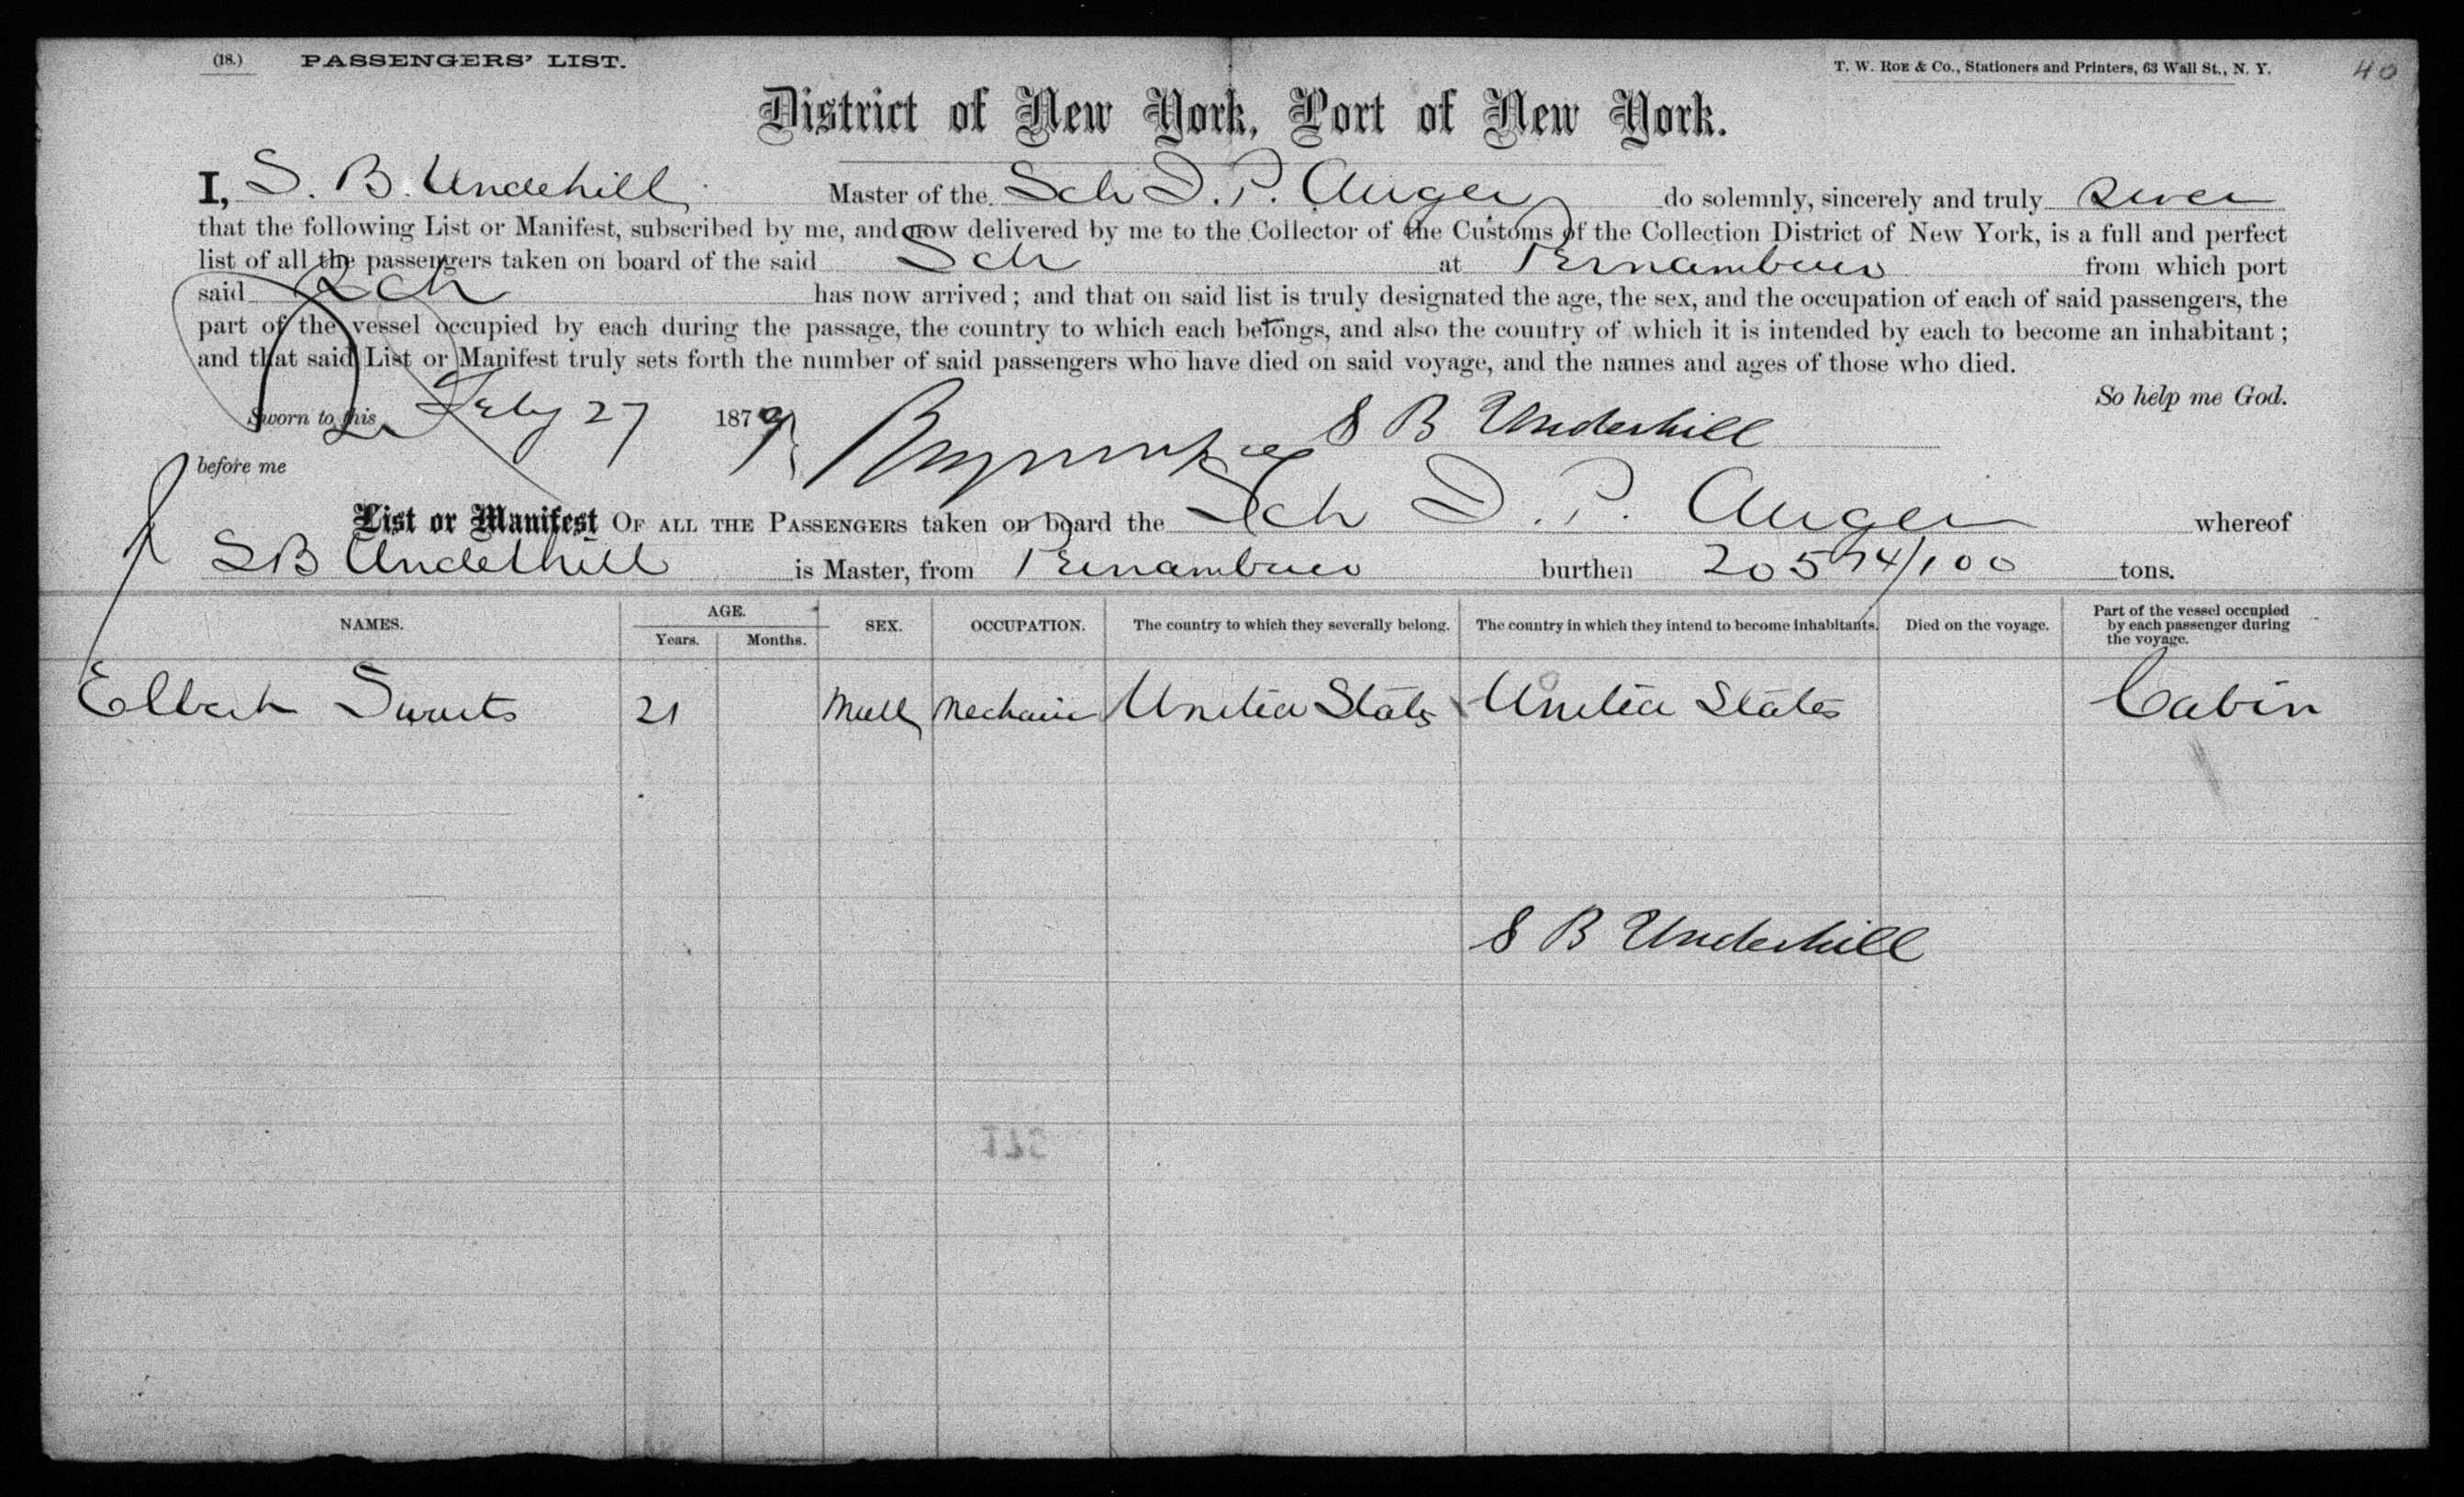 (18.) PASSENGERS' LIST.
T. W. ROE & Co., Stationers and Printers, 63 Wall St., N. Y. 40
District of New York, Port of New York.
I, S. B. Undehill Master of the Sch D. P. Auger do solemnly, sincerely and truly swear
that the following List or Manifest, subscribed by me, and now delivered by me to the Collector of the Customs of the Collection District of New York, is a full and perfect
list of all the passengers taken on board of the said Sch at Pernambuco from which port
said Sch has now arrived; and that on said list is truly designated the age, the sex, and the occupation of each of said passengers, the
part of the vessel occupied by each during the passage, the country to which each belongs, and also the country of which it is intended by each to become an inhabitant;
and that said List or Manifest truly sets forth the number of said passengers who have died on said voyage, and the names and ages of those who died.
So help me God.
Sworn to this Feby 27 1879 S B Underhill
before me
List or Manifest OF ALL THE PASSENGERS taken on board the Sch D. P. Auger whereof
S B Underhill is Master, from Pernambuco burthen 205 74/100 tons.
NAMES. AGE. Years. Months. SEX. OCCUPATION. The country to which they severally belong. The country in which they intend to become inhabitants. Died on the voyage. Part of the vessel occupied by each passenger during the voyage.
Elbert 21 Male Mechanic United States United States Cabin
S B Underhill